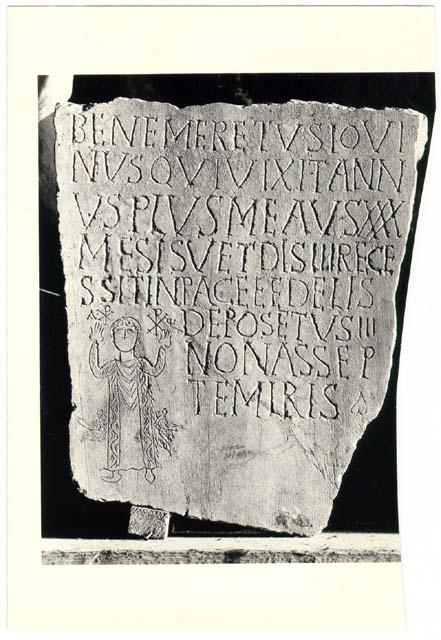 BENEMERETUSIOVI
NUSQUIUIXITANN
VSPLVSMEAVSXXX
MESISVETDISIIIIRECE
SSITINPACEEFDELIS
DEPOSETVSIII
NONASSEP
TEMIRIS